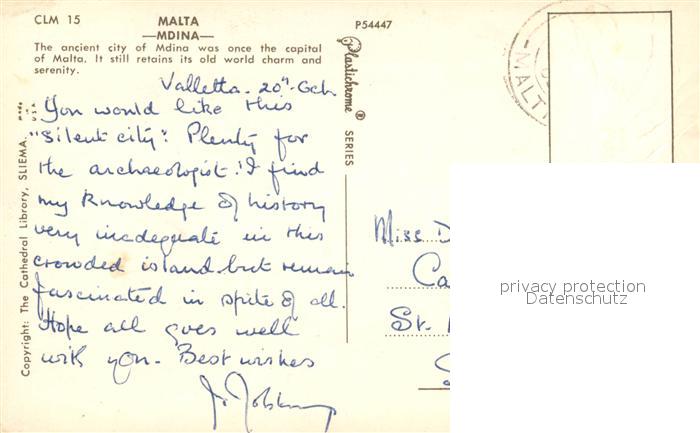 CLM 15
MALTA
—MDINA—
P54447
The ancient city of Mdina was once the capital
of Malta. It still retains its old world charm and
serenity.
Plastichrome®
SERIES
Copyright: The Cathedral Library, SLIEMA.
MALT
Valletta. 20th
You would like this
"silent city". Plenty for
the archaeologist! I find
my knowledge of history
very inadequate in this
crowded island but remain
fascinated in spite of all.
Hope all goes well
with you. Best wishes
Miss D
Ca
St.
privacy protection
Datenschutz